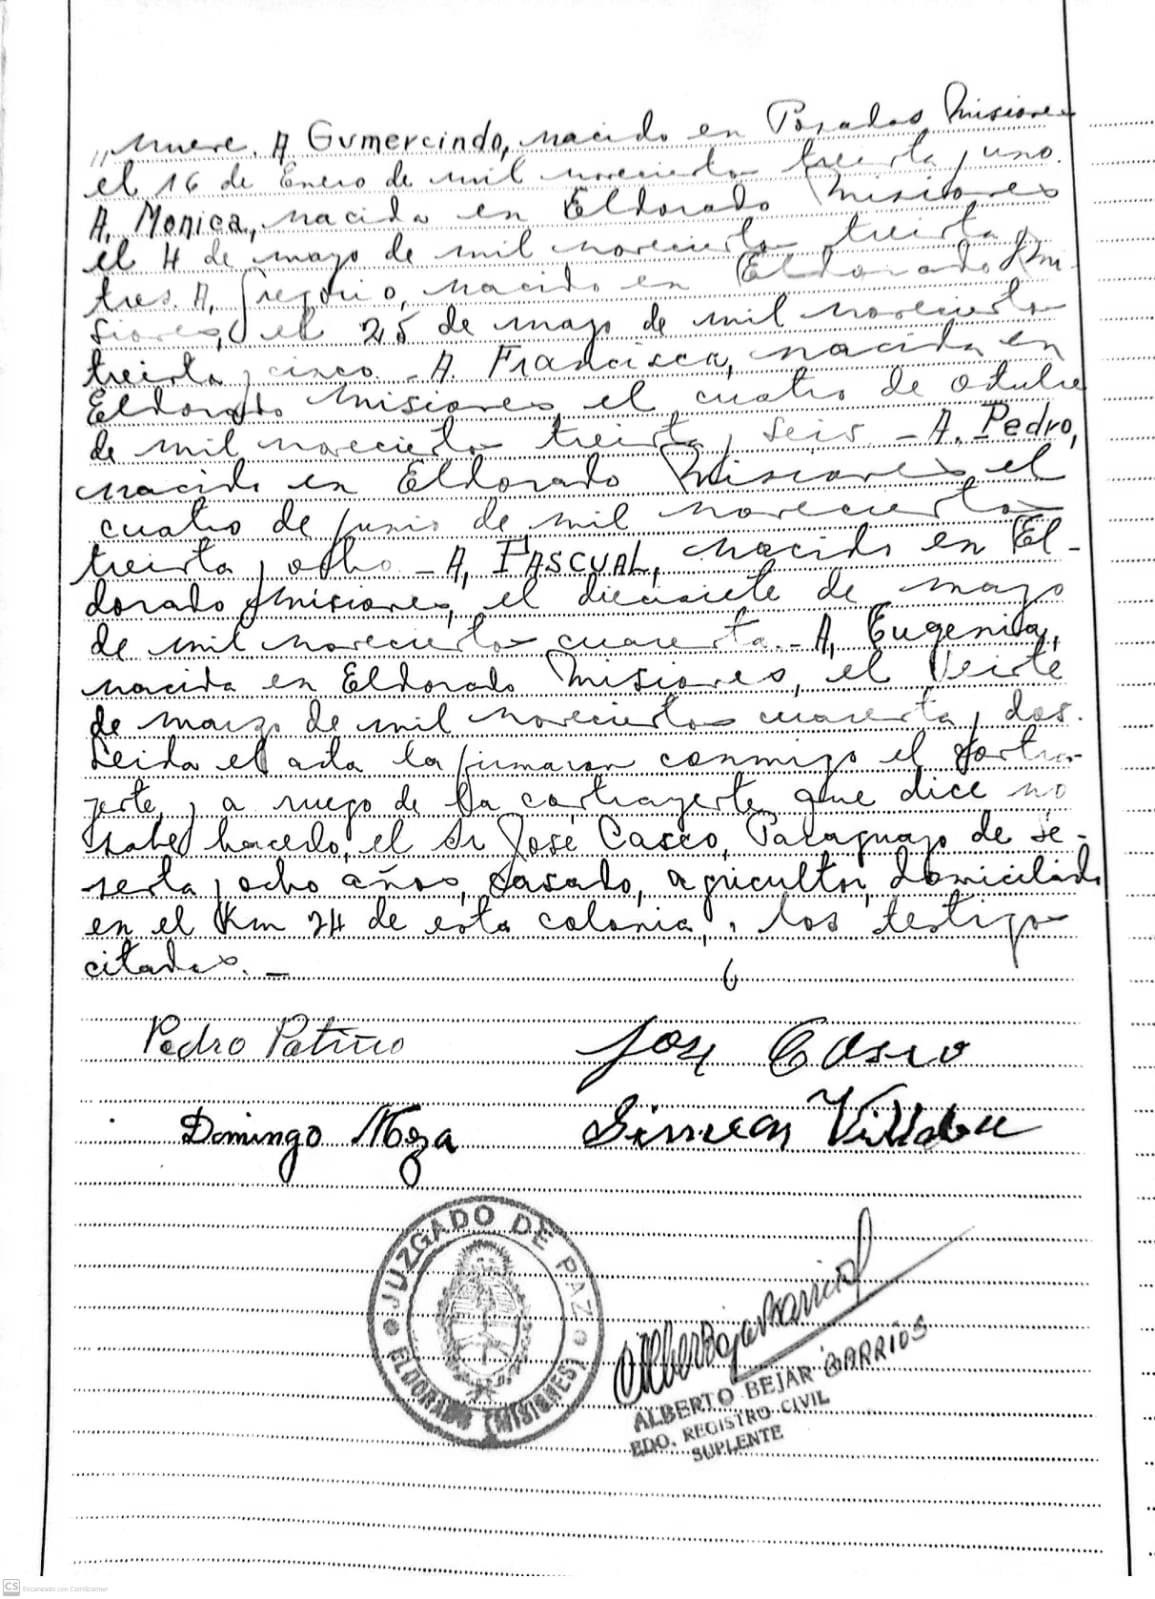 „ nueve. A Gumercindo, nacido en Posadas Misiones
el 16 de Enero de mil novecientos treinta y uno.
A, Monica, nacida en Eldorado Misiones
el 4 de mayo de mil novecientos treinta y
tres. A, Gregorio, nacido en Eldorado Mi-
siones, el 25 de mayo de mil novecientos
treinta y cinco. - A. Francisca, nacida en
Eldorado Misiones, el cuatro de octubre
de mil novecientos treinta y seis. - A. Pedro,
nacido en Eldorado Misiones el
cuatro de junio de mil novecientos
treinta y ocho. - A, PASCUAL, nacido en El-
dorado Misiones, el diecisiete de mayo
de mil novecientos cuarenta. - A, Eugenia,
nacida en Eldorado Misiones, el Veinte
de marzo de mil novecientos cuarenta y dos.
Leida el acta la firmaron conmigo el contra-
yente, y a ruego de la contrayente que dice no
saber hacerlo, el Sr José Casco, Paraguayo de se-
senta y ocho años, casado, agricultor, domiciliado
en el Km 24 de esta colonia, y los testigos
citados. -
Pedro Patiño
Jose Casco
Domingo Meza
Simeon
JUZGADO DE PAZ
ELDORADO (MISIONES)
ALBERTO BEJAR BARRIOS
EDO. REGISTRO CIVIL
SUPLENTE
CS Escaneado con CamScanner